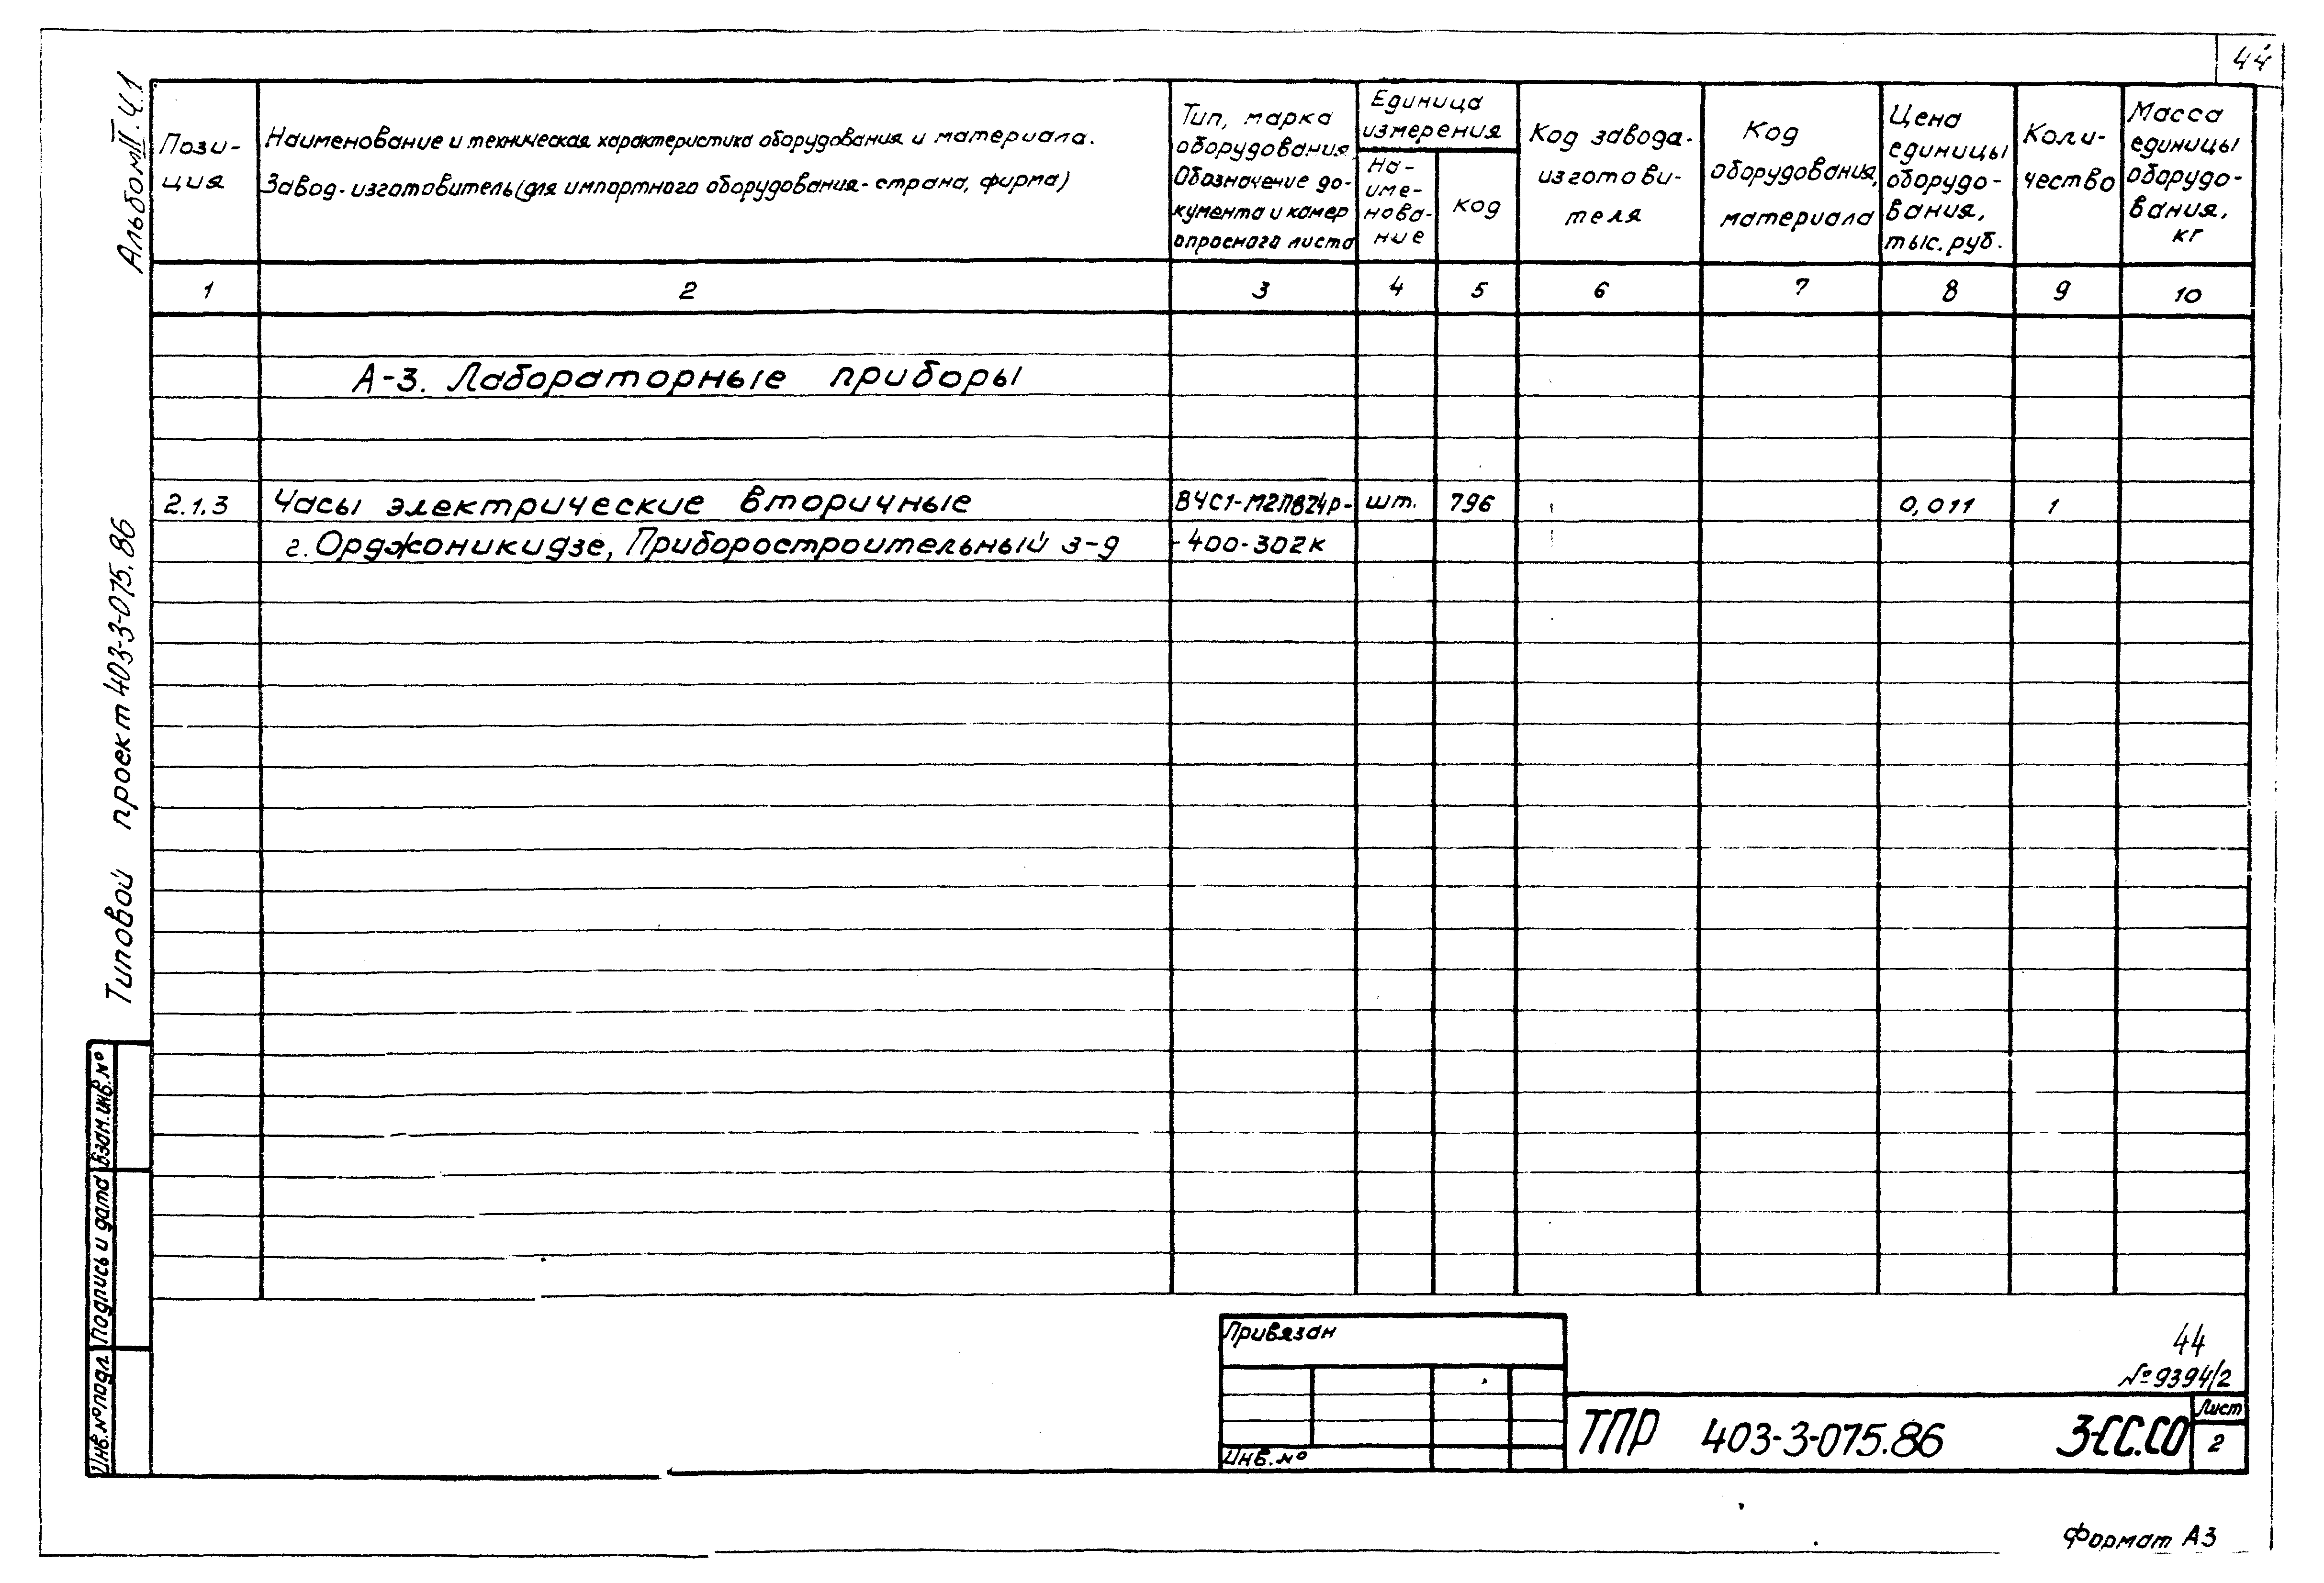 44
Альбом II. Ч.1
Типовой проект 403-3-075.86
Пози-
ция
Наименование и техническая характеристика оборудования и материала.
Завод-изготовитель (для импортного оборудования - страна, фирма)
Тип, марка
оборудования.
Обозначение до-
кумента и номер
опросного листа
Единица
измерения
На-
име-
нова-
ние
код
Код завода-
изготови-
теля
Код
оборудования,
материала
Цена
единицы
оборудо-
вания,
тыс. руб.
Коли-
чество
Масса
единицы
оборудо-
вания,
кг
1 2 3 4 5 6 7 8 9 10
А-3. Лабораторные приборы
2.1.3 Часы электрические вторичные ВЧС1-М2ПВ24Р- шт. 796 0,011 1
г. Орджоникидзе, Приборостроительный з-д -400-302к
Взам. инв. №
Подпись и дата
Инв. № подл
Привязан
Инв. №
44
№9394/2
ТПР 403-3-075.86 3-СС.СО
Лист
2
Формат А3